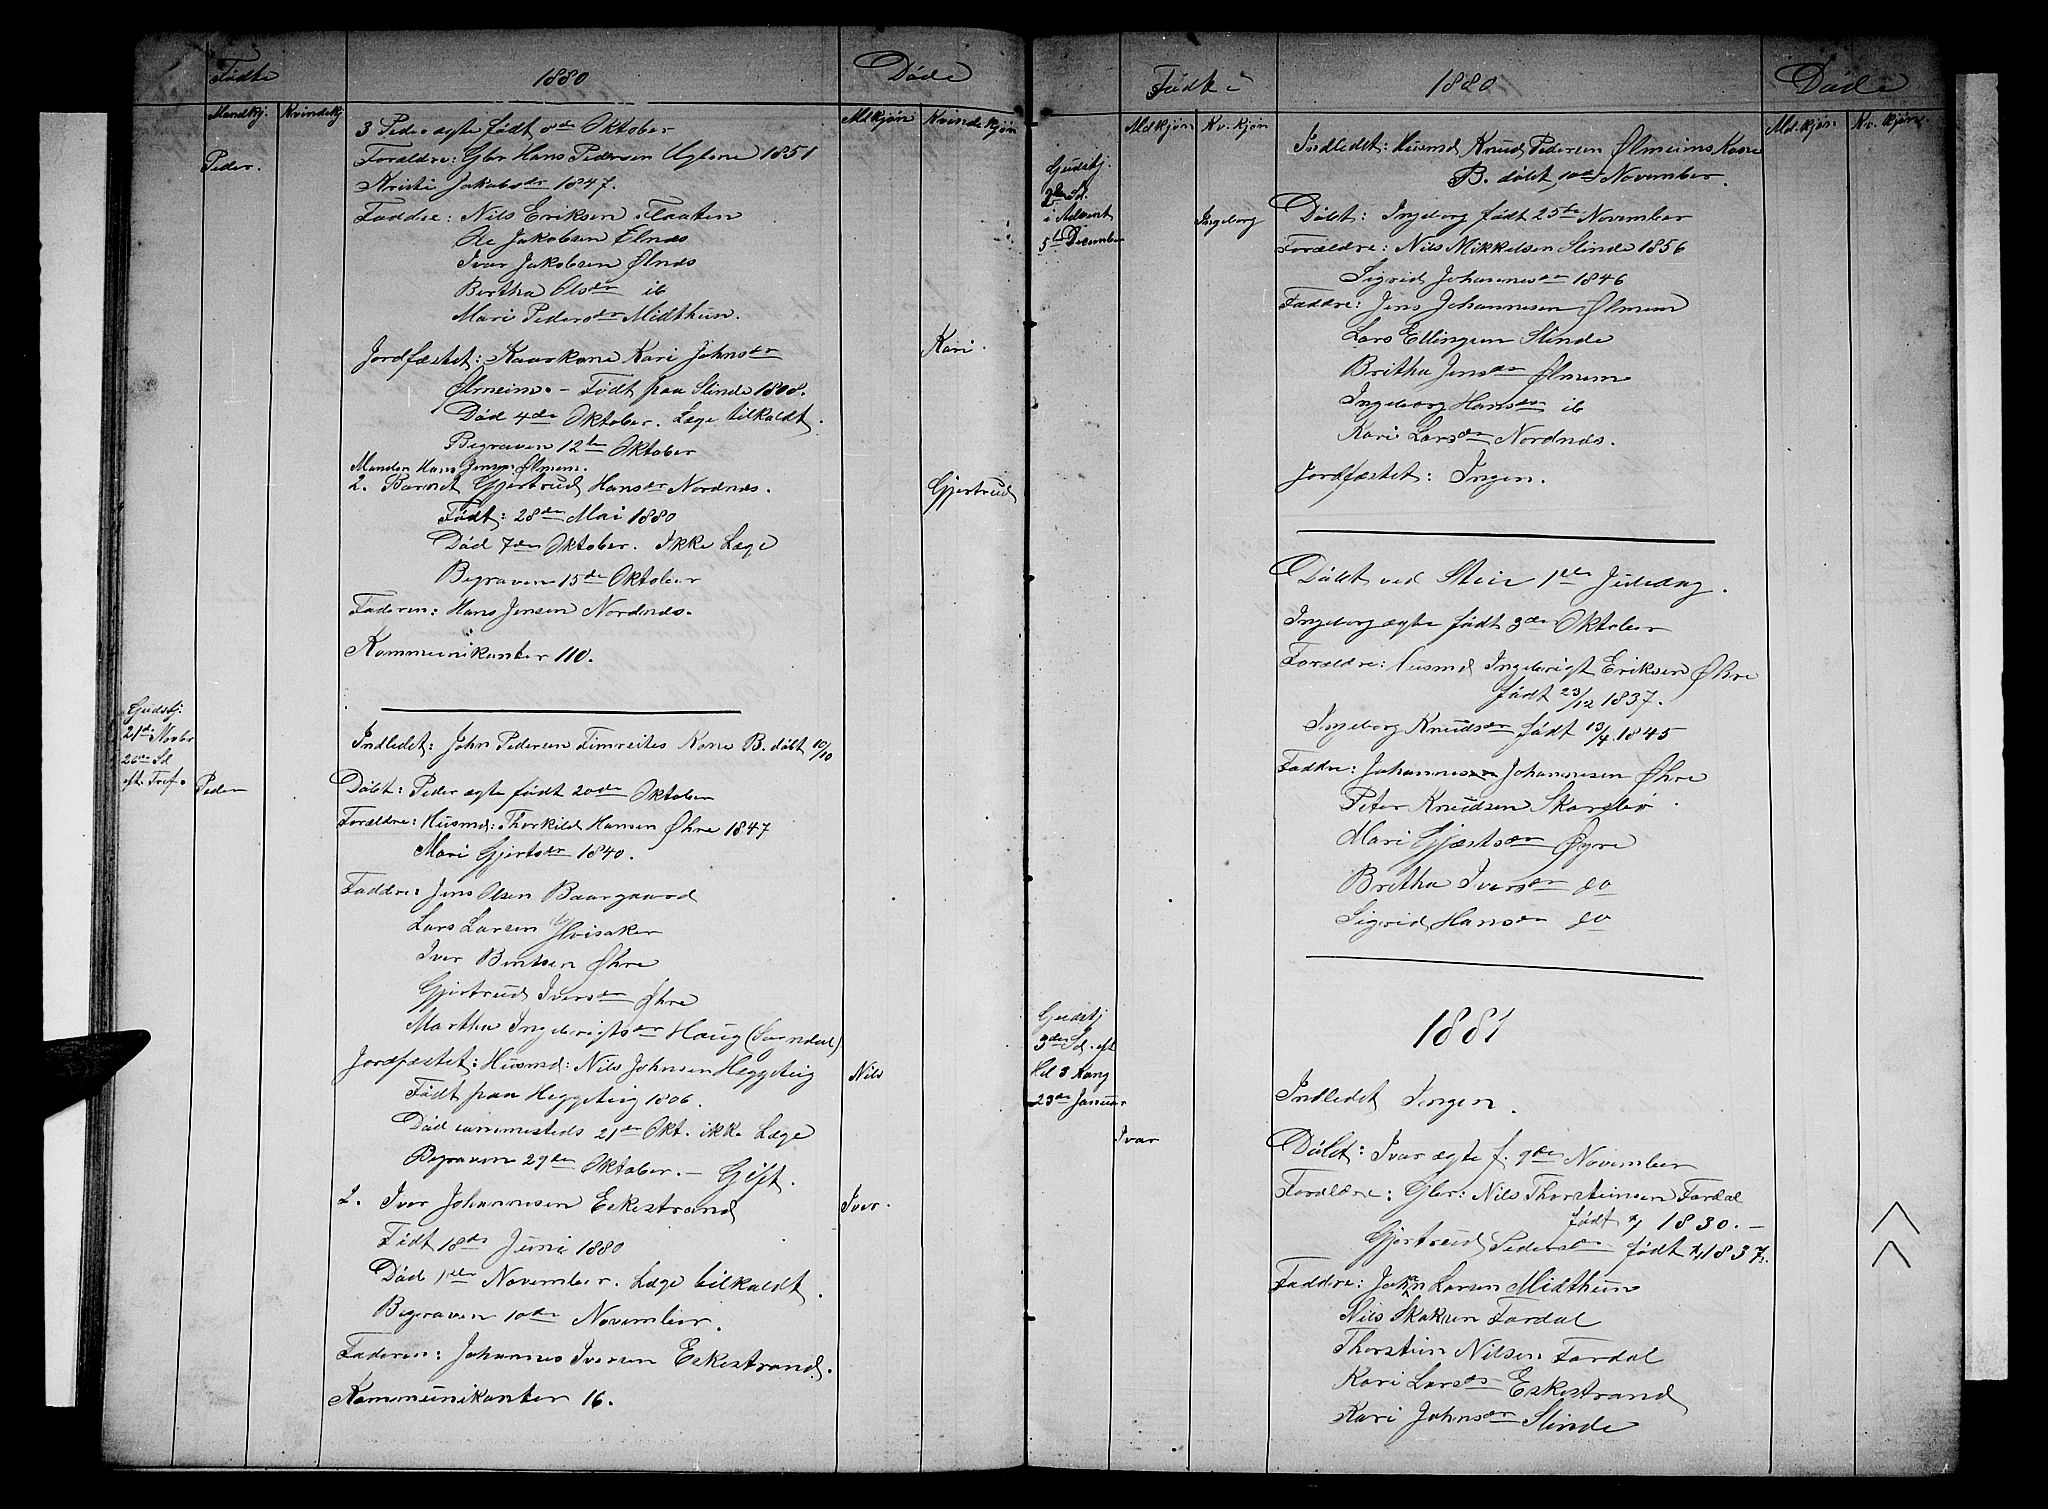 Fødte
1880
Døde
Mandkj.
Kvindekj
Mdkjøn
Kvindekjøn
3 Peder ægte født 8de Oktober
Peder.
Forældre: Gbr Hans Pedersen 1851
Kristi Jakobsdr 1847.
Faddre: Nils Eriksen Flaaten
Ole Jakobsen Ølnæs
Ivar Jakobsen Ølnæs
Bertha Olsdr ib
Mari Pedersdr Midthun.
Jordfæstet: Kaarkone Kari Johnsdr
Kari.
Ølmeim. – Født paa Slinde 1808.
Død 4de Oktober. Læge tilkaldt.
Begraven 12te Oktober
Manden Hans Jensen Ølmem.
2. Barnet Gjertrud Hansdr Nordnæs.
Gjertrud
Født: 28de Mai 1880
Død 7de Oktober. Ikke Læge
Begraven 15de Oktober
Faderen: Hans Jensen Nordnæs.
Kommunikanter 110.
Gudstj.
21de Novbr
26de Sd
eft. Tref.
Indledet: John Pedersen Timreites Kone B. døbt 10/10
Peder
Døbt: Peder ægte født 20de Oktober
Forældre: Husmd: Thorkild Hansen Øhre 1847
Mari Gjertsdr 1840.
Faddre: Jens Olsen Baargaard
Lars Larsen Hvisaker
Iver Bentsen Øhre
Gjertrud Iversdr Øhre
Martha Ingebrigtsdr Haug (Sogndal)
Jordfæstet: Husmd: Nils Johnsen Heggeteig
Nils
Født paa Heggeteig 1806.
Død sammesteds 21de Okt. ikke Læge
Begraven 29de Oktober. – Gift.
2. Iver Johannesen Eskestrand
Iver.
Født 18de Juni 1880
Død 1ste November. Læge tilkaldt.
Begraven 10de November.
Faderen: Johannes Iversen Eskestrand.
Kommunikanter 16.
Fødte
1880
Døde
Mdkjøn
Kv. kjøn
Md. kjøn
Kv. kjøn
Indledet: Husmd Knud Pedersen Ølmeims Kone
B. døbt 10de November.
Gudstj.
2den Sd.
i Advent
5te December
Ingeborg
Døbt: Ingeborg født 25te November
Forældre: Nils Mikkelsen Slinde 1856
Sigrid Johannesdr 1846
Faddre: Jens Johannesen Ølmem
Lars Ellingsen Slinde
Britha Jensdr Ølmem
Ingeborg Hansdr ib
Kari Larsdr Nordnæs.
Jordfæstet: Ingen.
Døbt ved Steie 1ste Juledag.
Ingeborg ægte født 3de Oktober
Forældre: Husmd Ingebrigt Eriksen Øhre
født 23/12 1837.
Ingeborg Knudsdr født 13/4 1845
Faddre: Johannes Johannesen Øhre
Peter Knudsen Skarsbø.
Mari Gjertsdr Øyre
Britha Iversdr do
Sigrid Hansdr do
1881
Gudstj
3de Sd. eft
Hel 3 Kong
23de Januar
Indledet Ingen.
Ivar
Døbt: Ivar ægte f. 9de November
Forældre: Gbr: Nils Thorsteinsen Fardal
født 1830. –
Gjertrud Pedersdr født 1837.
Faddre: Johan Larsen Midthun
Nils Skaksen Fardal
Thorstein Nilsen Fardal
Kari Larsdr Eskestrand
Kari Johnsdr Slinde